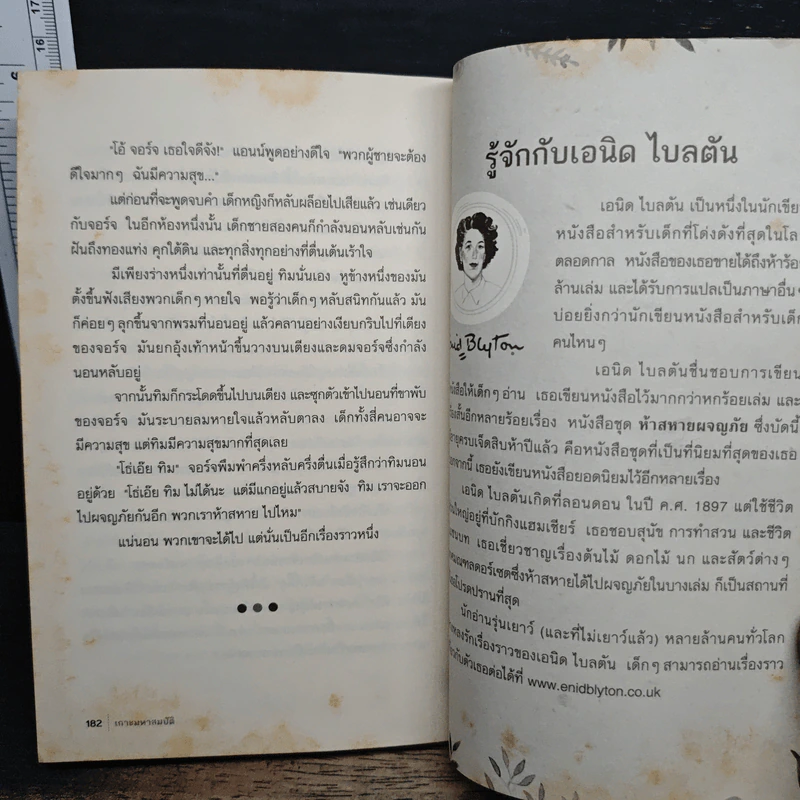 17
16
6
"โอ้ จอร์จ เธอใจดีจัง!" แอนน์พูดอย่างดีใจ "พวกผู้ชายจะต้อง
ดีใจมากๆ ฉันมีความสุข..."
แต่ก่อนที่จะพูดจบคำ เด็กหญิงก็หลับผล็อยไปเสียแล้ว เช่นเดียว
กับจอร์จ ในอีกห้องหนึ่งนั้น เด็กชายสองคนก็กำลังนอนหลับเช่นกัน
ฝันถึงทองแท่ง คุกใต้ดิน และทุกสิ่งทุกอย่างที่ตื่นเต้นเร้าใจ
มีเพียงร่างหนึ่งเท่านั้นที่ตื่นอยู่ ทิมนั่นเอง หูข้างหนึ่งของมัน
ตั้งขึ้นฟังเสียงพวกเด็กๆ หายใจ พอรู้ว่าเด็กๆ หลับสนิทกันแล้ว มัน
ก็ค่อยๆ ลุกขึ้นจากพรมที่นอนอยู่ แล้วคลานอย่างเงียบกริบไปที่เตียง
ของจอร์จ มันยกอุ้งเท้าหน้าขึ้นวางบนเตียงและดมจอร์จซึ่งกำลัง
นอนหลับอยู่
จากนั้นทิมก็กระโดดขึ้นไปบนเตียง และซุกตัวเข้าไปนอนที่ขาพับ
ของจอร์จ มันระบายลมหายใจแล้วหลับตาลง เด็กทั้งสี่คนอาจจะ
มีความสุข แต่ทิมมีความสุขมากที่สุดเลย
"โธ่เอ๊ย ทิม" จอร์จพึมพำครึ่งหลับครึ่งตื่นเมื่อรู้สึกว่าทิมนอน
อยู่ด้วย "โธ่เอ๊ย ทิม ไม่ได้นะ แต่มีแกอยู่แล้วสบายจัง ทิม เราจะออก
ไปผจญภัยกันอีก พวกเราห้าสหาย ไปไหม"
แน่นอน พวกเขาจะได้ไป แต่นั่นเป็นอีกเรื่องราวหนึ่ง
182 เกาะมหาสมบัติ
รู้จักกับเอนิด ไบลตัน
เอนิด ไบลตัน เป็นหนึ่งในนักเขีย
หนังสือสำหรับเด็กที่โด่งดังที่สุดในโล
ตลอดกาล หนังสือของเธอขายได้ถึงห้าร้อย
ล้านเล่ม และได้รับการแปลเป็นภาษาอื่นๆ
บ่อยยิ่งกว่านักเขียนหนังสือสำหรับเด็ก
คนไหนๆ
nid Blyton
เอนิด ไบลตันชื่นชอบการเขียน
หนังสือให้เด็กๆ อ่าน เธอเขียนหนังสือไว้มากกว่าหกร้อยเล่ม และ
เรื่องสั้นอีกหลายร้อยเรื่อง หนังสือชุด ห้าสหายผจญภัย ซึ่งบัดนี้
อายุครบเจ็ดสิบห้าปีแล้ว คือหนังสือชุดที่เป็นที่นิยมที่สุดของเธอ
นอกจากนี้ เธอยังเขียนหนังสือยอดนิยมไว้อีกหลายเรื่อง
เอนิด ไบลตันเกิดที่ลอนดอน ในปี ค.ศ. 1897 แต่ใช้ชีวิต
ส่วนใหญ่อยู่ที่บักกิงแฮมเชียร์ เธอชอบสุนัข การทำสวน และชีวิต
ชนบท เธอเชี่ยวชาญเรื่องต้นไม้ ดอกไม้ นก และสัตว์ต่างๆ
มณฑลดอร์เซตซึ่งห้าสหายได้ไปผจญภัยในบางเล่ม ก็เป็นสถานที่
โปรดปรานที่สุด
นักอ่านรุ่นเยาว์ (และที่ไม่เยาว์แล้ว) หลายล้านคนทั่วโลก
หลงรักเรื่องราวของเอนิด ไบลตัน เด็กๆ สามารถอ่านเรื่องราว
เกี่ยวกับตัวเธอต่อได้ที่ www.enidblyton.co.uk